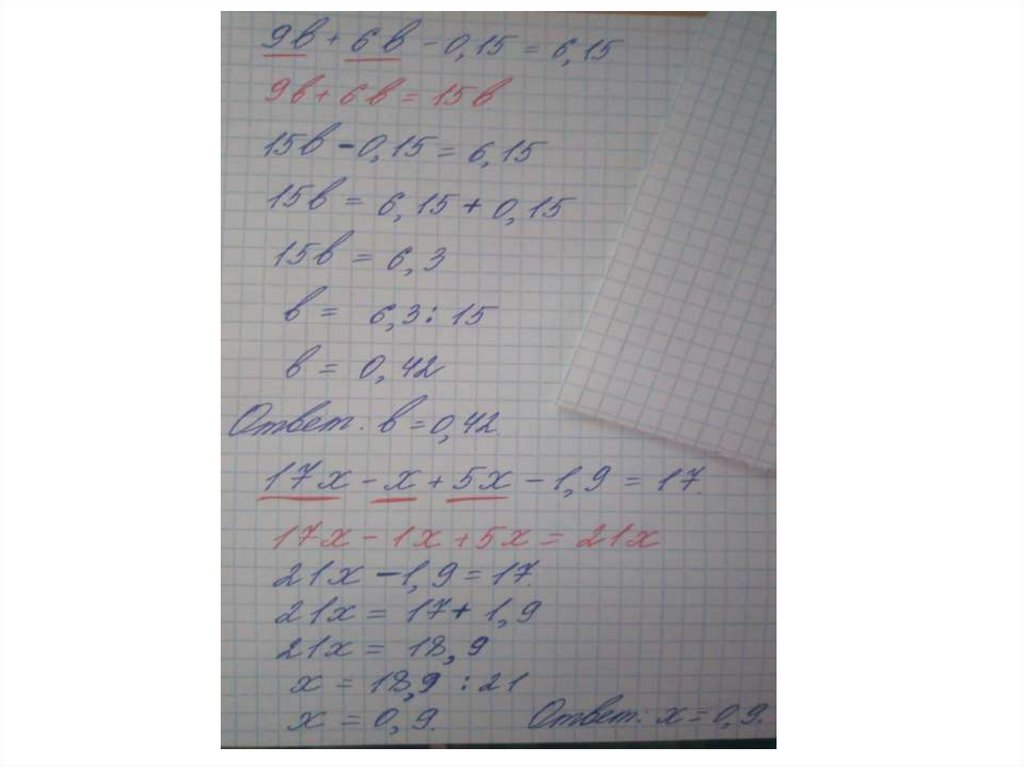 9в + 6в - 0,15 = 6,15
9в + 6в = 15в
15в - 0,15 = 6,15
15в = 6,15 + 0,15
15в = 6,3
в = 6,3 : 15
в = 0,42
Ответ. в = 0,42.
17х - х + 5х - 1,9 = 17.
17х - 1х + 5х = 21х
21х - 1,9 = 17.
21х = 17 + 1,9
21х = 18,9
х = 18,9 : 21
х = 0,9. Ответ: х = 0,9.